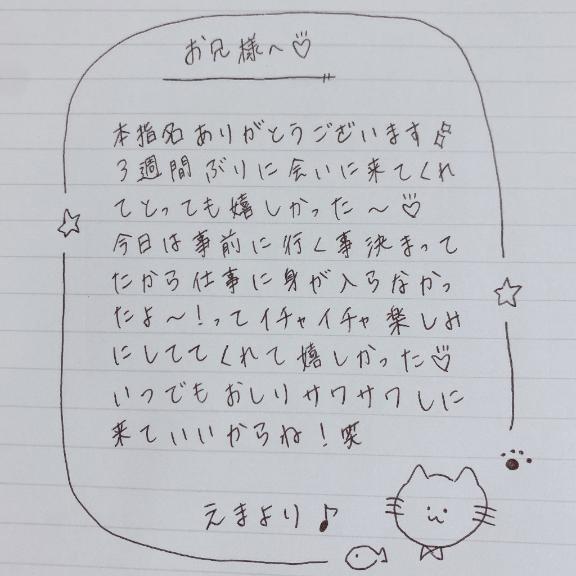 お兄様へ♡
本指名ありがとうございます♪
3週間ぶりに会いに来てくれ
てとっても嬉しかった〜♡
今日は事前に行く事決まって
たから仕事に身が入らなかっ
たよ〜!ってイチャイチャ楽しみ
にしててくれて嬉しかった♡
いつでもおしりサワサワしに
来ていいからね!笑
えまより♪